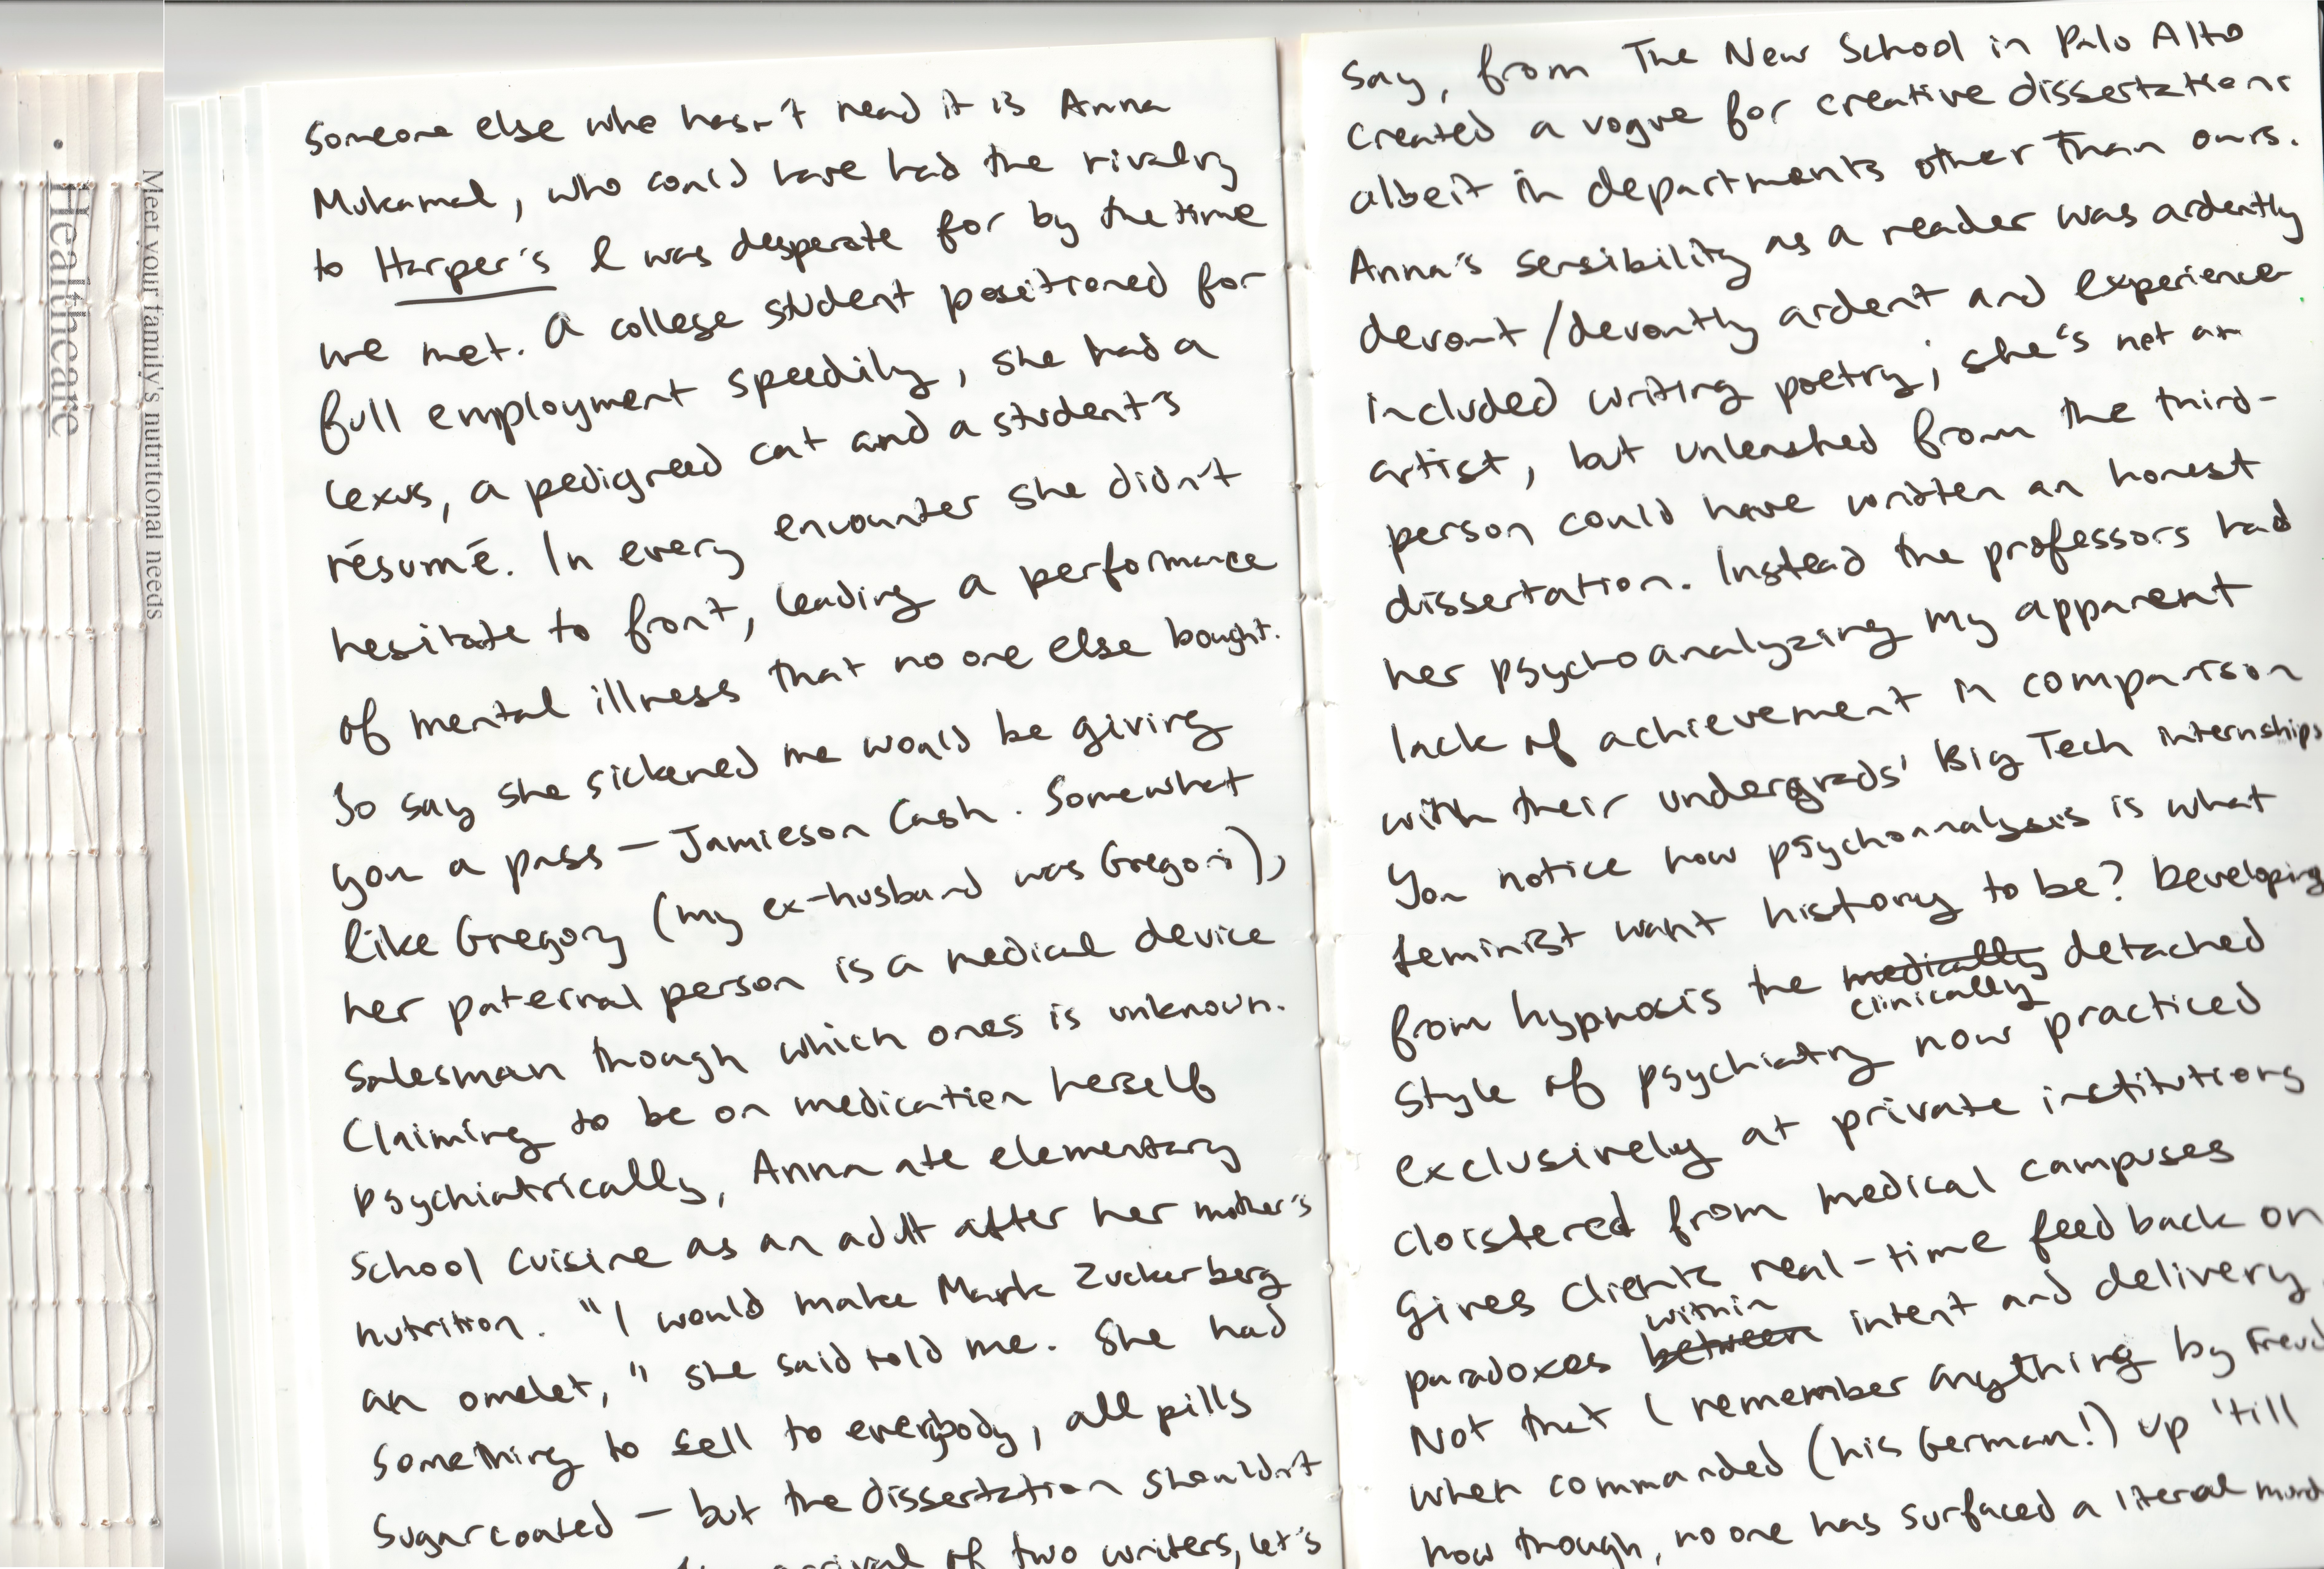 Meet your family's nutritional needs
Healthcare
someone else who hasn't read it is Anna
Mukamal, who could have had the rivalry
to Harper's I was desperate for by the time
we met. A college student positioned for
full employment speedily, she had a
Lexus, a pedigreed cat and a student's
résumé. In every encounter she didn't
hesitate to front, leading a performance
of mental illness that no one else bought.
So say she sickened me would be giving
you a pass — Jamieson Cash. Somewhat
like Gregory (my ex-husband was Gregori),
her paternal person is a medical device
salesman though which ones is unknown.
Claiming to be on medication herself
psychiatrically, Anna ate elementary
school cuisine as an adult after her mother's
nutrition. "I would make Mark Zuckerberg
an omelet," she said told me. She had
something to sell to everybody, all pills
sugarcoated — but the dissertation shouldn't
arrival of two writers, let's
say, from The New School in Palo Alto
created a vogue for creative dissertations
albeit in departments other than ours.
Anna's sensibility as a reader was ardently
devout/devoutly ardent and experience
included writing poetry; she's not an
artist, but unleashed from the third-
person could have written an honest
dissertation. Instead the professors had
her psychoanalyzing my apparent
lack of achievement in comparison
with their undergrads' Big Tech internships
You notice how psychoanalysis is what
feminist want history to be? Developing
from hypnosis the medically detached
clinically
style of psychiatry now practiced
exclusively at private institutions
cloistered from medical campuses
gives clients real-time feedback on
within
paradoxes between intent and delivery
Not that I remember anything by Freud
when commanded (his German!) up 'till
now though, no one has surfaced a literal